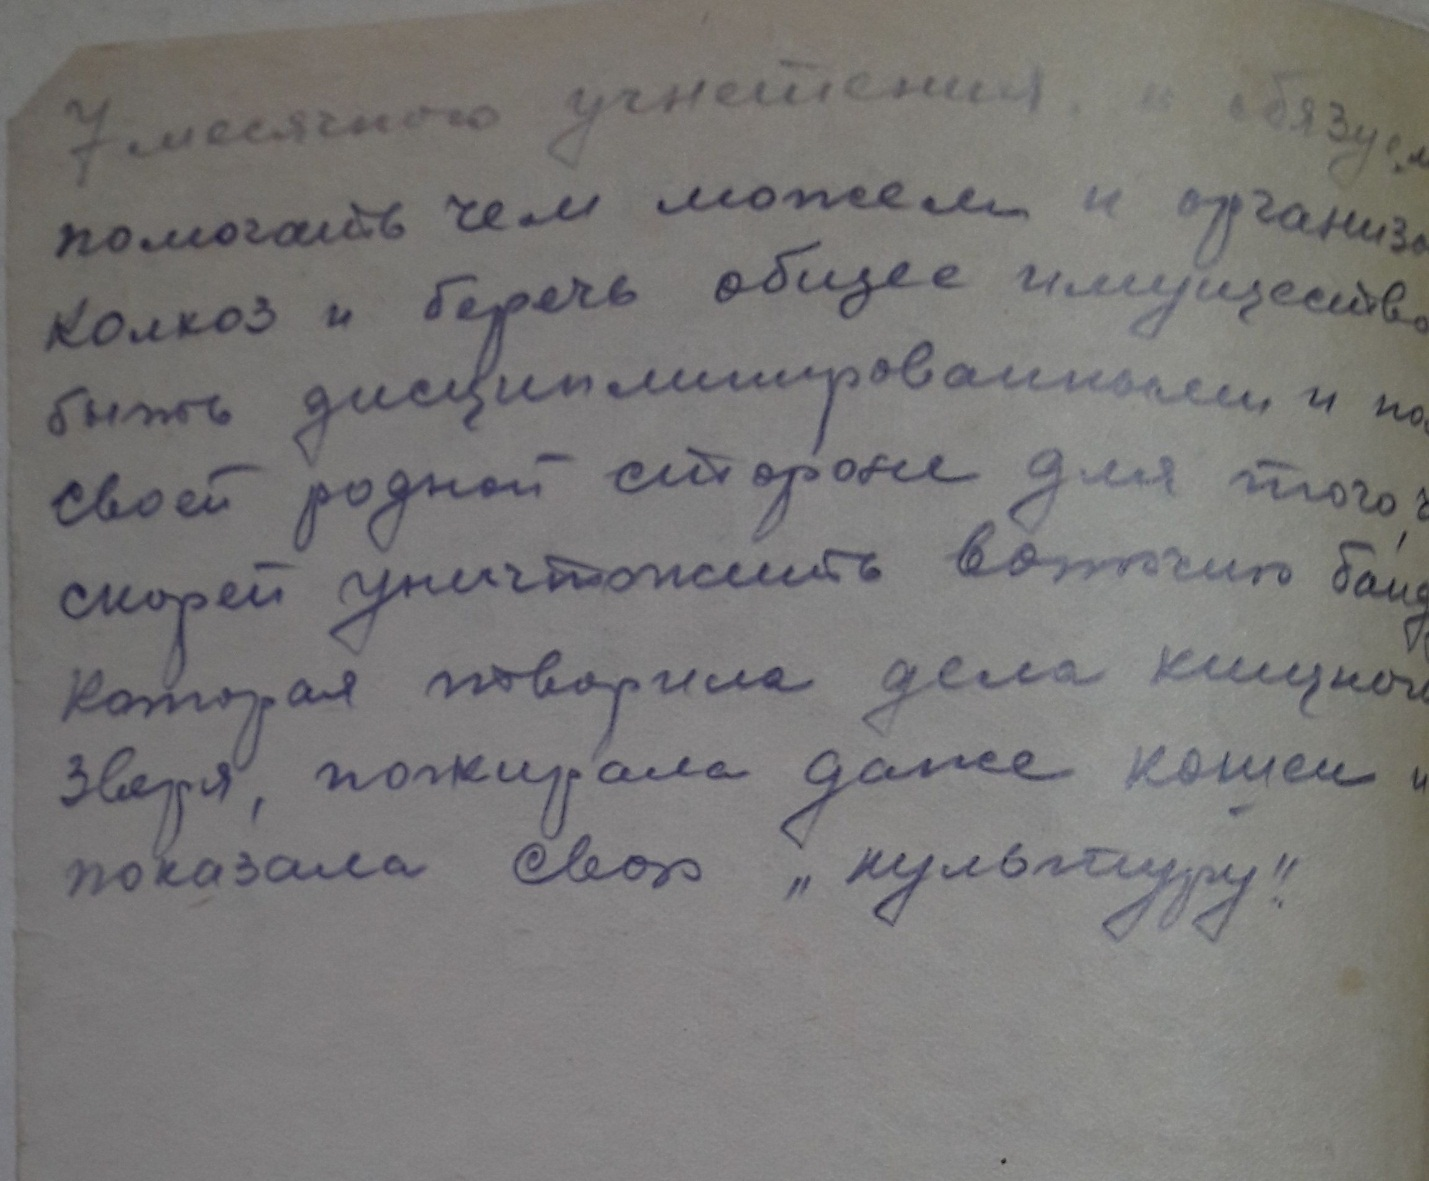 7 месячного угнетения, и обязуем
помогать чем можем и организо
колхоз и беречь общее имущество
быть дисциплинированными и
своей родной стороне для того,
скорей уничтожить вонючию банд
которая творила дела кищного
зверя, пожирала даже кошек и
показала свою „культуру"!